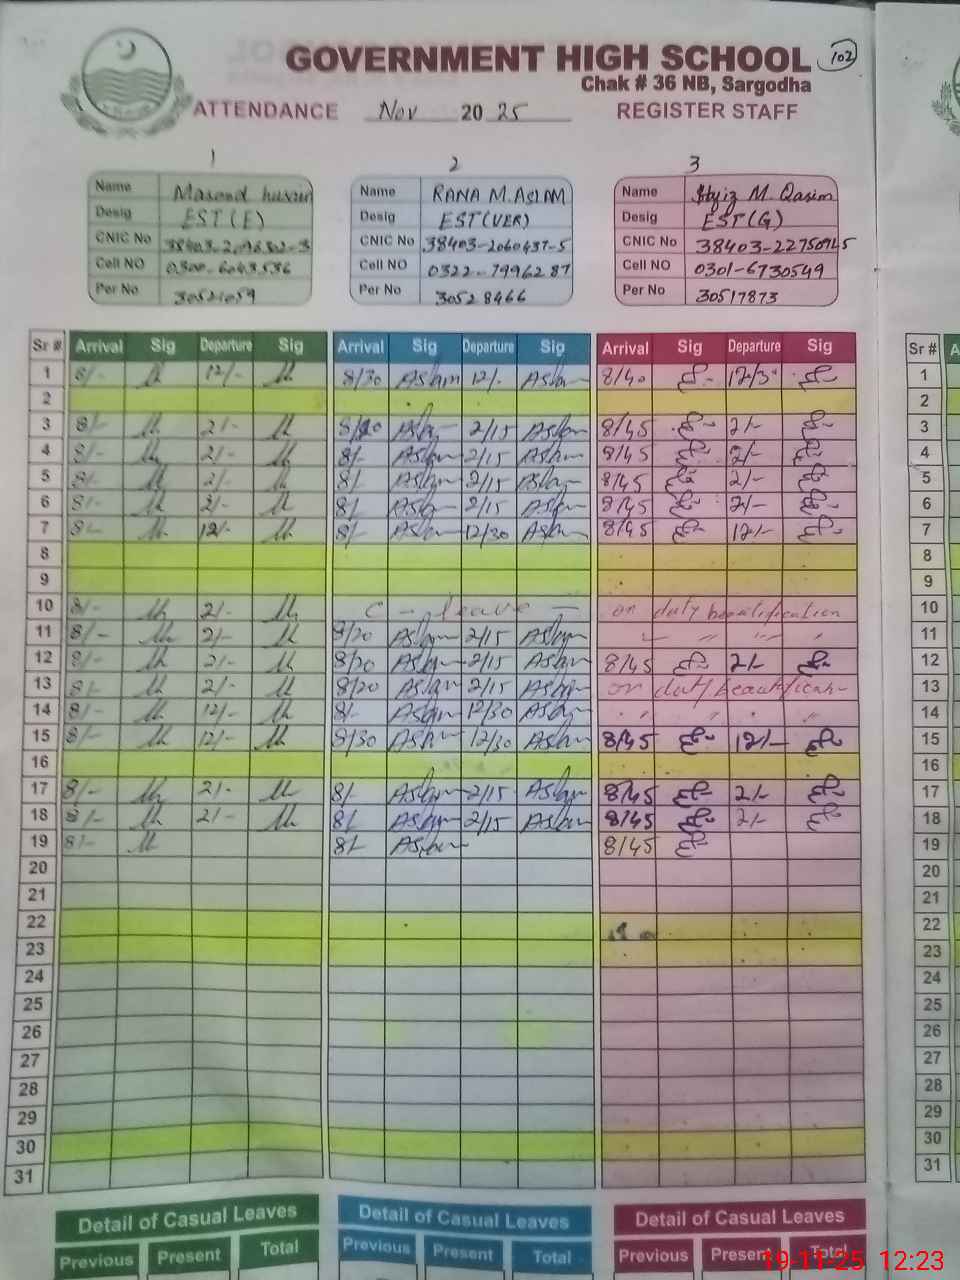 GOVERNMENT HIGH SCHOOL 102
Chak # 36 NB, Sargodha
ATTENDANCE Nov 20 25 REGISTER STAFF
1 2 3
Name Masood hussain Name RANA M. ASLAM Name M. Qasim
Desig EST (E) Desig EST (VER) Desig EST (G)
CNIC No CNIC No 38403-2060437-5 CNIC No
Cell NO 0300-6043536 Cell NO 0322-7996287 Cell NO 0301-6730549
Per No Per No 30528466 Per No 30517873
Sr # Arrival Sig Departure Sig Arrival Sig Departure Sig Arrival Sig Departure Sig Sr #
1 8/- 12/- 8/30 Aslam 12/- Aslam 8/40 12/30 1
2 2
3 8/- 2/- Aslam 2/15 Aslam 8/45 2/- 3
4 8/- 2/- 8/- Aslam 2/15 Aslam 8/45 2/- 4
5 8/- 2/- 8/- Aslam 2/15 Aslam 8/45 2/- 5
6 8/- 2/- 8/- Aslam 2/15 Aslam 8/45 2/- 6
7 8/- 12/- 8/- Aslam 12/30 Aslam 8/45 12/- 7
8 8
9 9
10 8/- 2/- C - leave - on duty beautification 10
11 8/- 2/- 8/20 Aslam 2/15 Aslam " " " " 11
12 8/- 2/- 8/20 Aslam 2/15 Aslam 8/45 2/- 12
13 8/- 2/- 8/20 Aslam 2/15 Aslam on duty beautification 13
14 8/- 12/- 8/- Aslam 12/30 Aslam 14
15 8/- 12/- 8/30 Aslam 12/30 Aslam 8/45 12/- 15
16 16
17 8/- 2/- 8/- Aslam 2/15 Aslam 8/45 2/- 17
18 8/- 2/- 8/- Aslam 2/15 Aslam 8/45 2/- 18
19 8/- 8/- Aslam 8/45 19
20 20
21 21
22 22
23 23
24 24
25 25
26 26
27 27
28 28
29 29
30 30
31 31
Detail of Casual Leaves Detail of Casual Leaves Detail of Casual Leaves
Previous Present Total Previous Present Total Previous Present Total
19-11-25 12:23